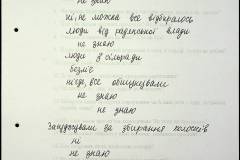 не знаю
ні, не можна все відбиралось
люди від радянської влади
не знаю
люди з сільради
безліч
ніде, все обшукували
не знаю
не знаю
Засуджували за збирання колосків
ні
не знаю